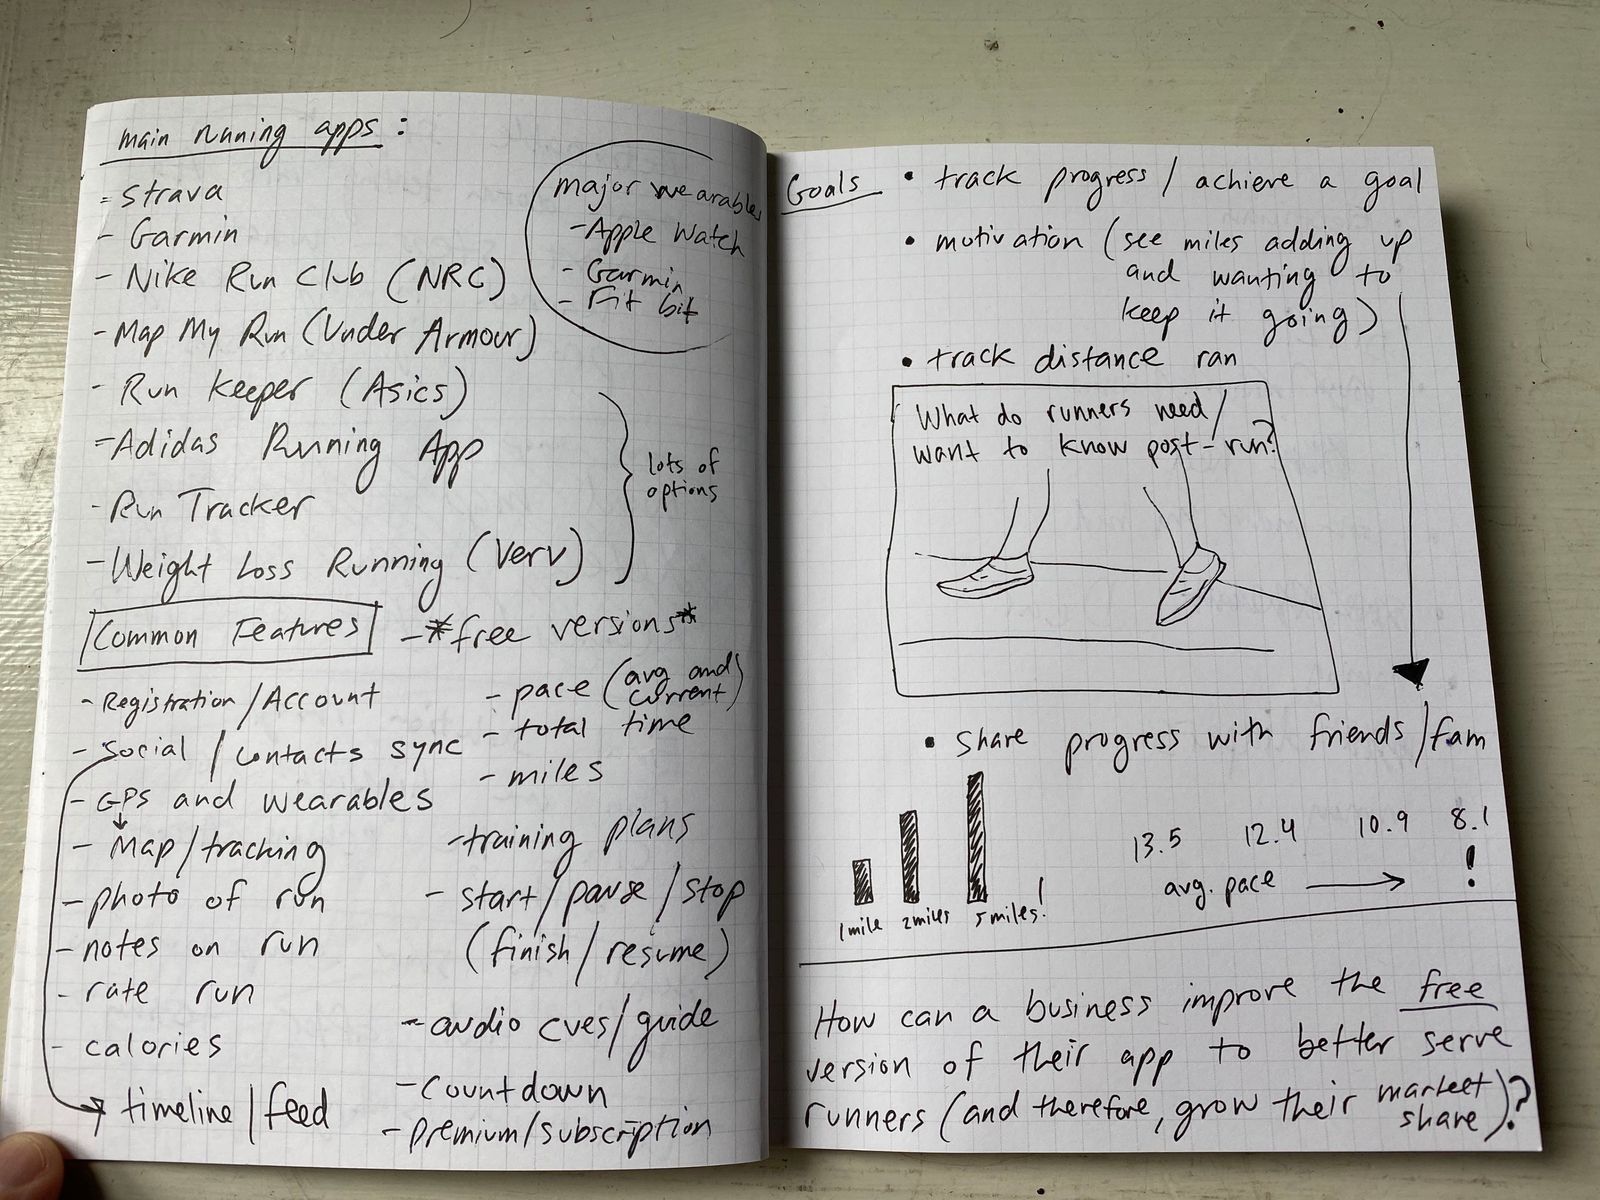 main running apps :
- Strava
- Garmin
- Nike Run Club (NRC)
- Map My Run (Under Armour)
- Run Keeper (Asics)
- Adidas Running App
- Run Tracker
- Weight Loss Running (Verv)
major wearables
- Apple Watch
- Garmin
- Fit bit
lots of
options
Common Features
- *free versions*
- Registration / Account
- social / contacts sync
- GPS and wearables
- Map / tracking
- photo of run
- notes on run
- rate run
- calories
timeline / feed
- pace (avg and
current)
- total time
- miles
- training plans
- start / pause / stop
(finish / resume)
- audio cues / guide
- countdown
- premium/subscription
Goals
• track progress / achieve a goal
• motivation (see miles adding up
and wanting to
keep it going)
• track distance ran
What do runners need/
want to know post-run?
• share progress with friends / fam
1 mile 2 miles 5 miles!
13.5 12.4 10.9 8.1
avg. pace → !
How can a business improve the free
version of their app to better serve
runners (and therefore, grow their market
share)?